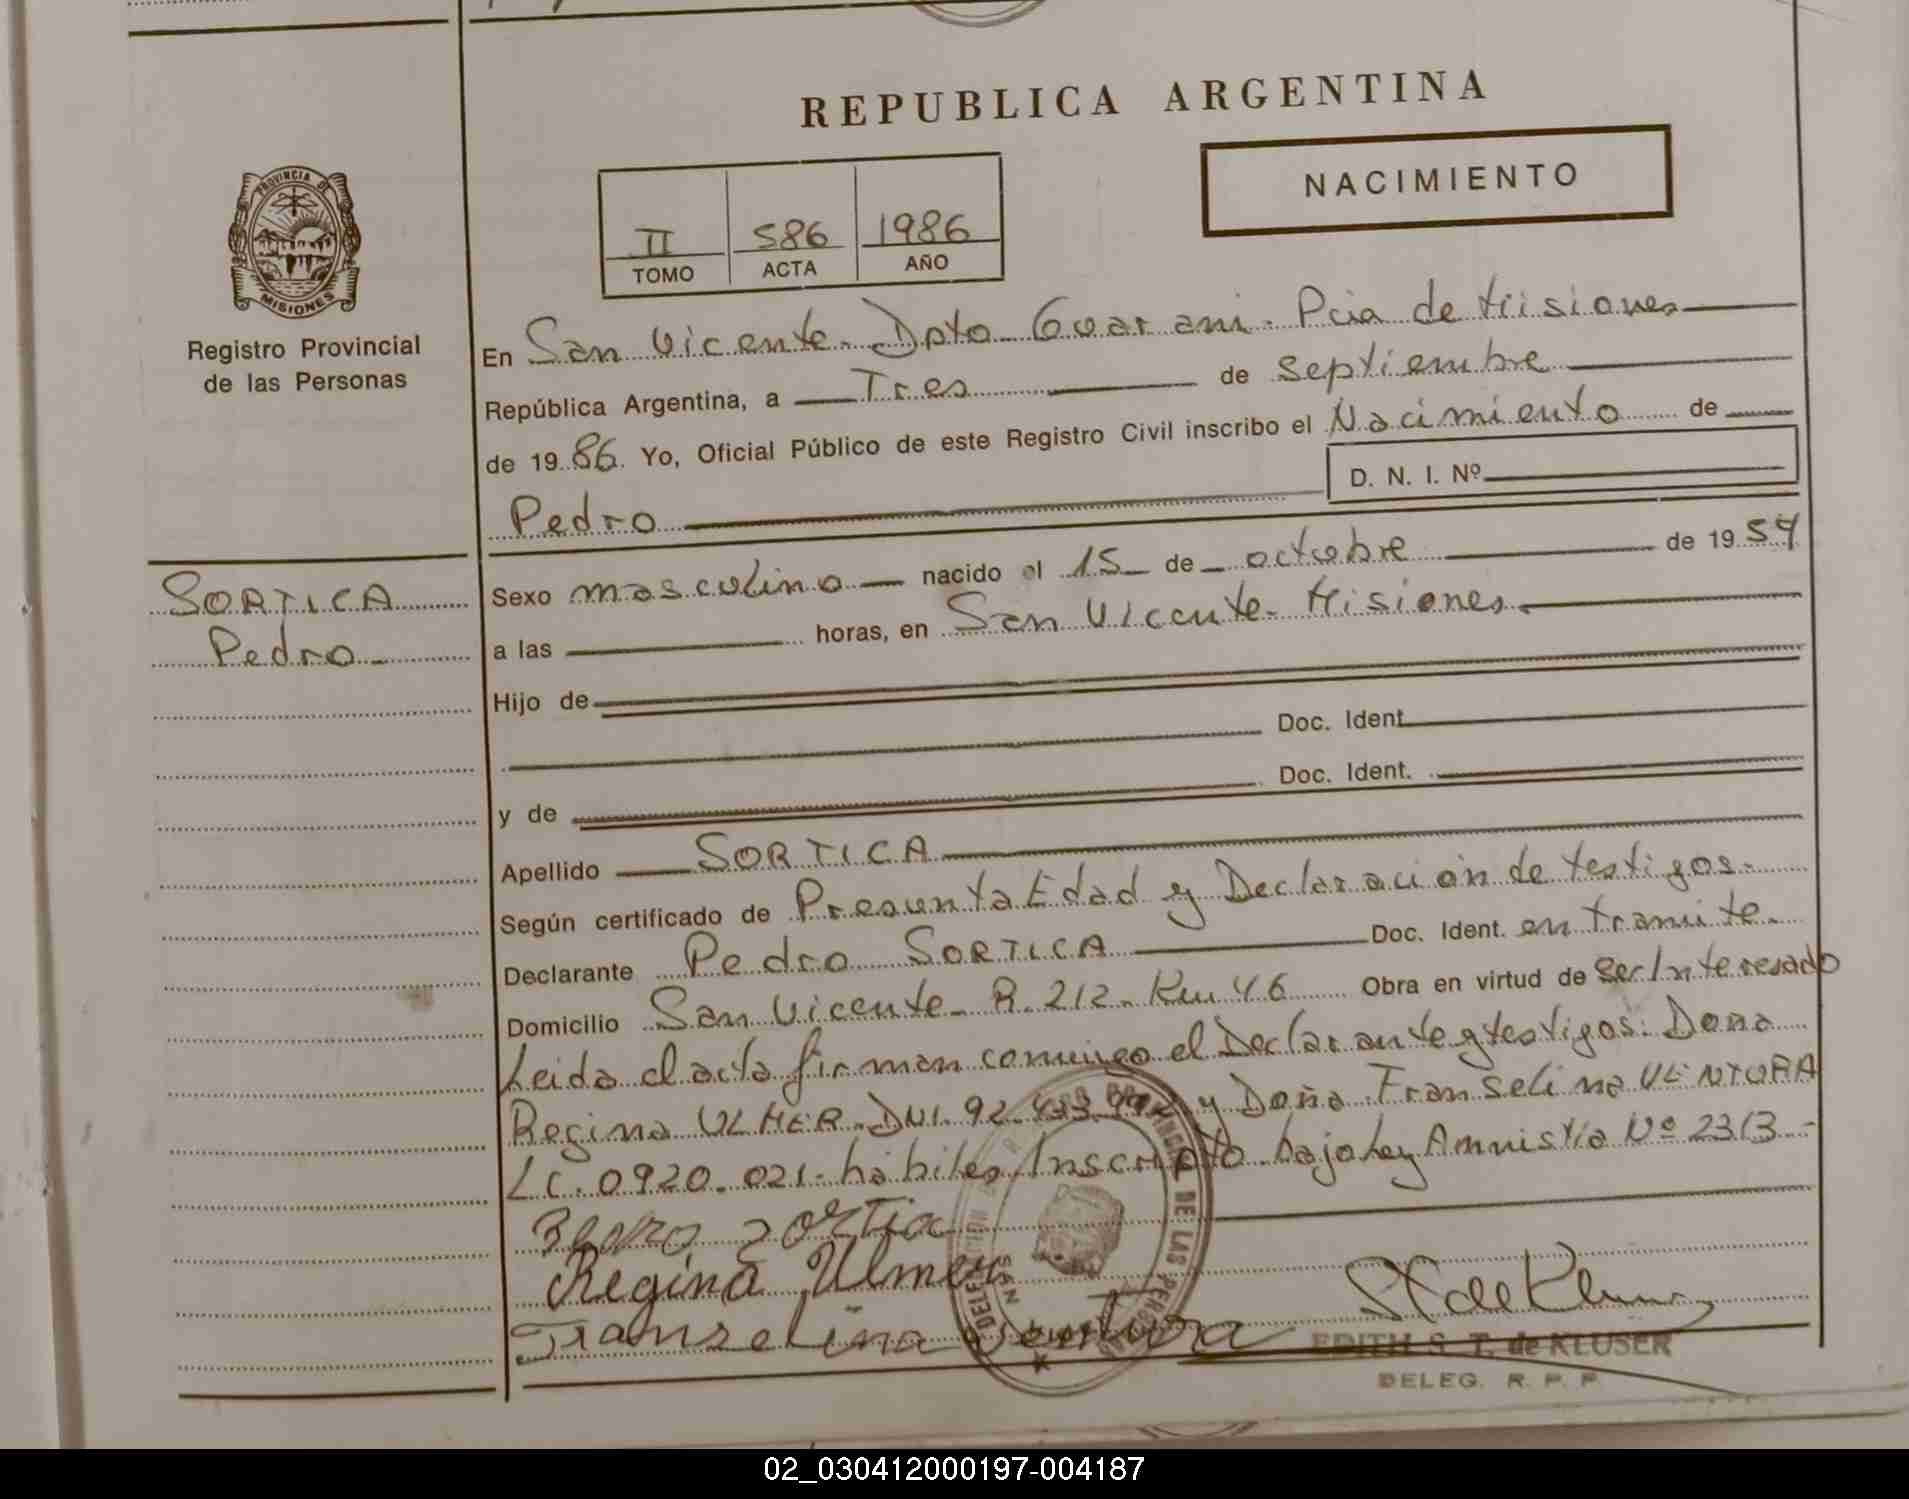 REPUBLICA ARGENTINA
NACIMIENTO
II 586 1986
TOMO ACTA AÑO
PROVINCIA DE
MISIONES
Registro Provincial
de las Personas
En San Vicente - Dpto Guarani - Pcia de Misiones
República Argentina, a Tres de septiembre
de 1986. Yo, Oficial Público de este Registro Civil inscribo el Nacimiento de
D. N. I. Nº
Pedro
SORTICA
Pedro
Sexo masculino nacido el 15 de octubre de 1954
a las horas, en San Vicente - Misiones
Hijo de
Doc. Ident.
y de Doc. Ident.
Apellido SORTICA
Según certificado de Presunta Edad y Declaración de testigos.
Declarante Pedro SORTICA Doc. Ident. en tramite.
Domicilio San Vicente - R. 212 - Km 46 Obra en virtud de ser Interesado
Leida el acta firman conmigo el Declarante y testigos: Doña
Regina ULMER - DNI. 92. y Doña Franselina VENTURA
LC. 0920.021 - hábiles Inscripto bajo Ley Amnistía Nº 2313 -
Regina Ulmer
Franzelina Ventura
EDITH S. T. de KLUSER
DELEG. R. P. P.
02_030412000197-004187